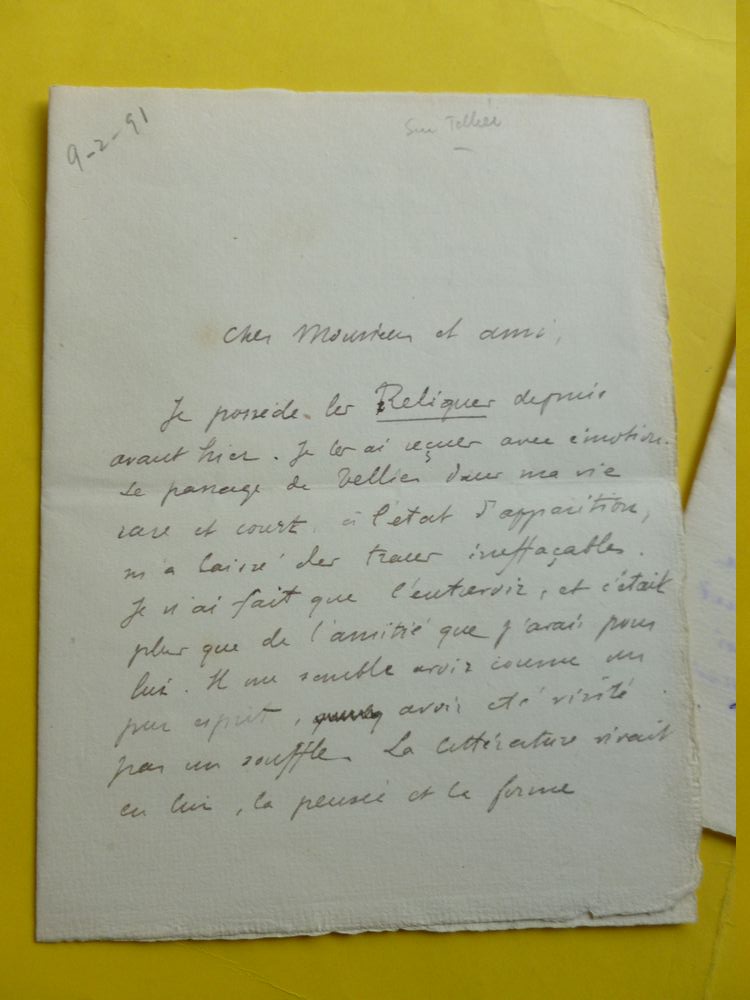 9-2-91
Sur Tellier
Cher Monsieur et ami,
Je possède les Reliques depuis
avant hier. Je les ai reçues avec émotion.
Le passage de Tellier dans ma vie
rare et court, à l'état d'apparition,
m'a laissé des traces ineffaçables.
Je n'ai fait que l'entrevoir, et c'était
plus que de l'amitié que j'avais pour
lui. Il me semble avoir connu un
pur esprit, avoir été visité
par un souffle. La littérature vivait
en lui, la pensée et la forme